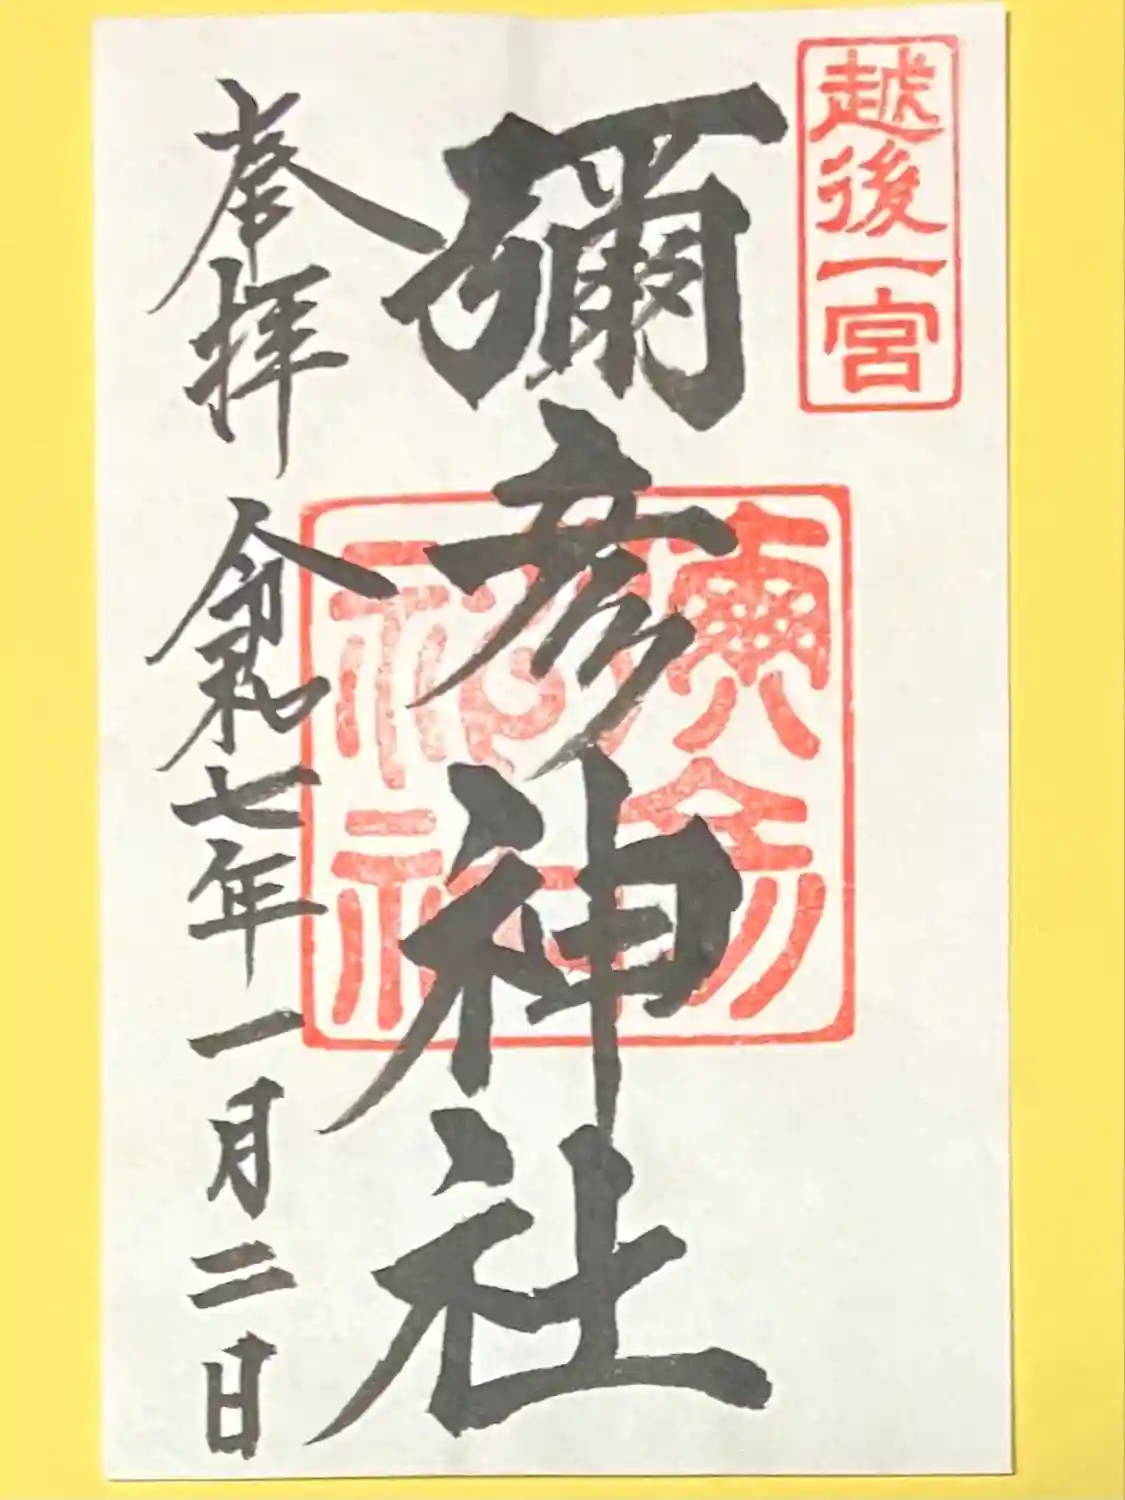 越後一宮
彌彦神社
奉拝
令和七年一月二日
彌彦
神社